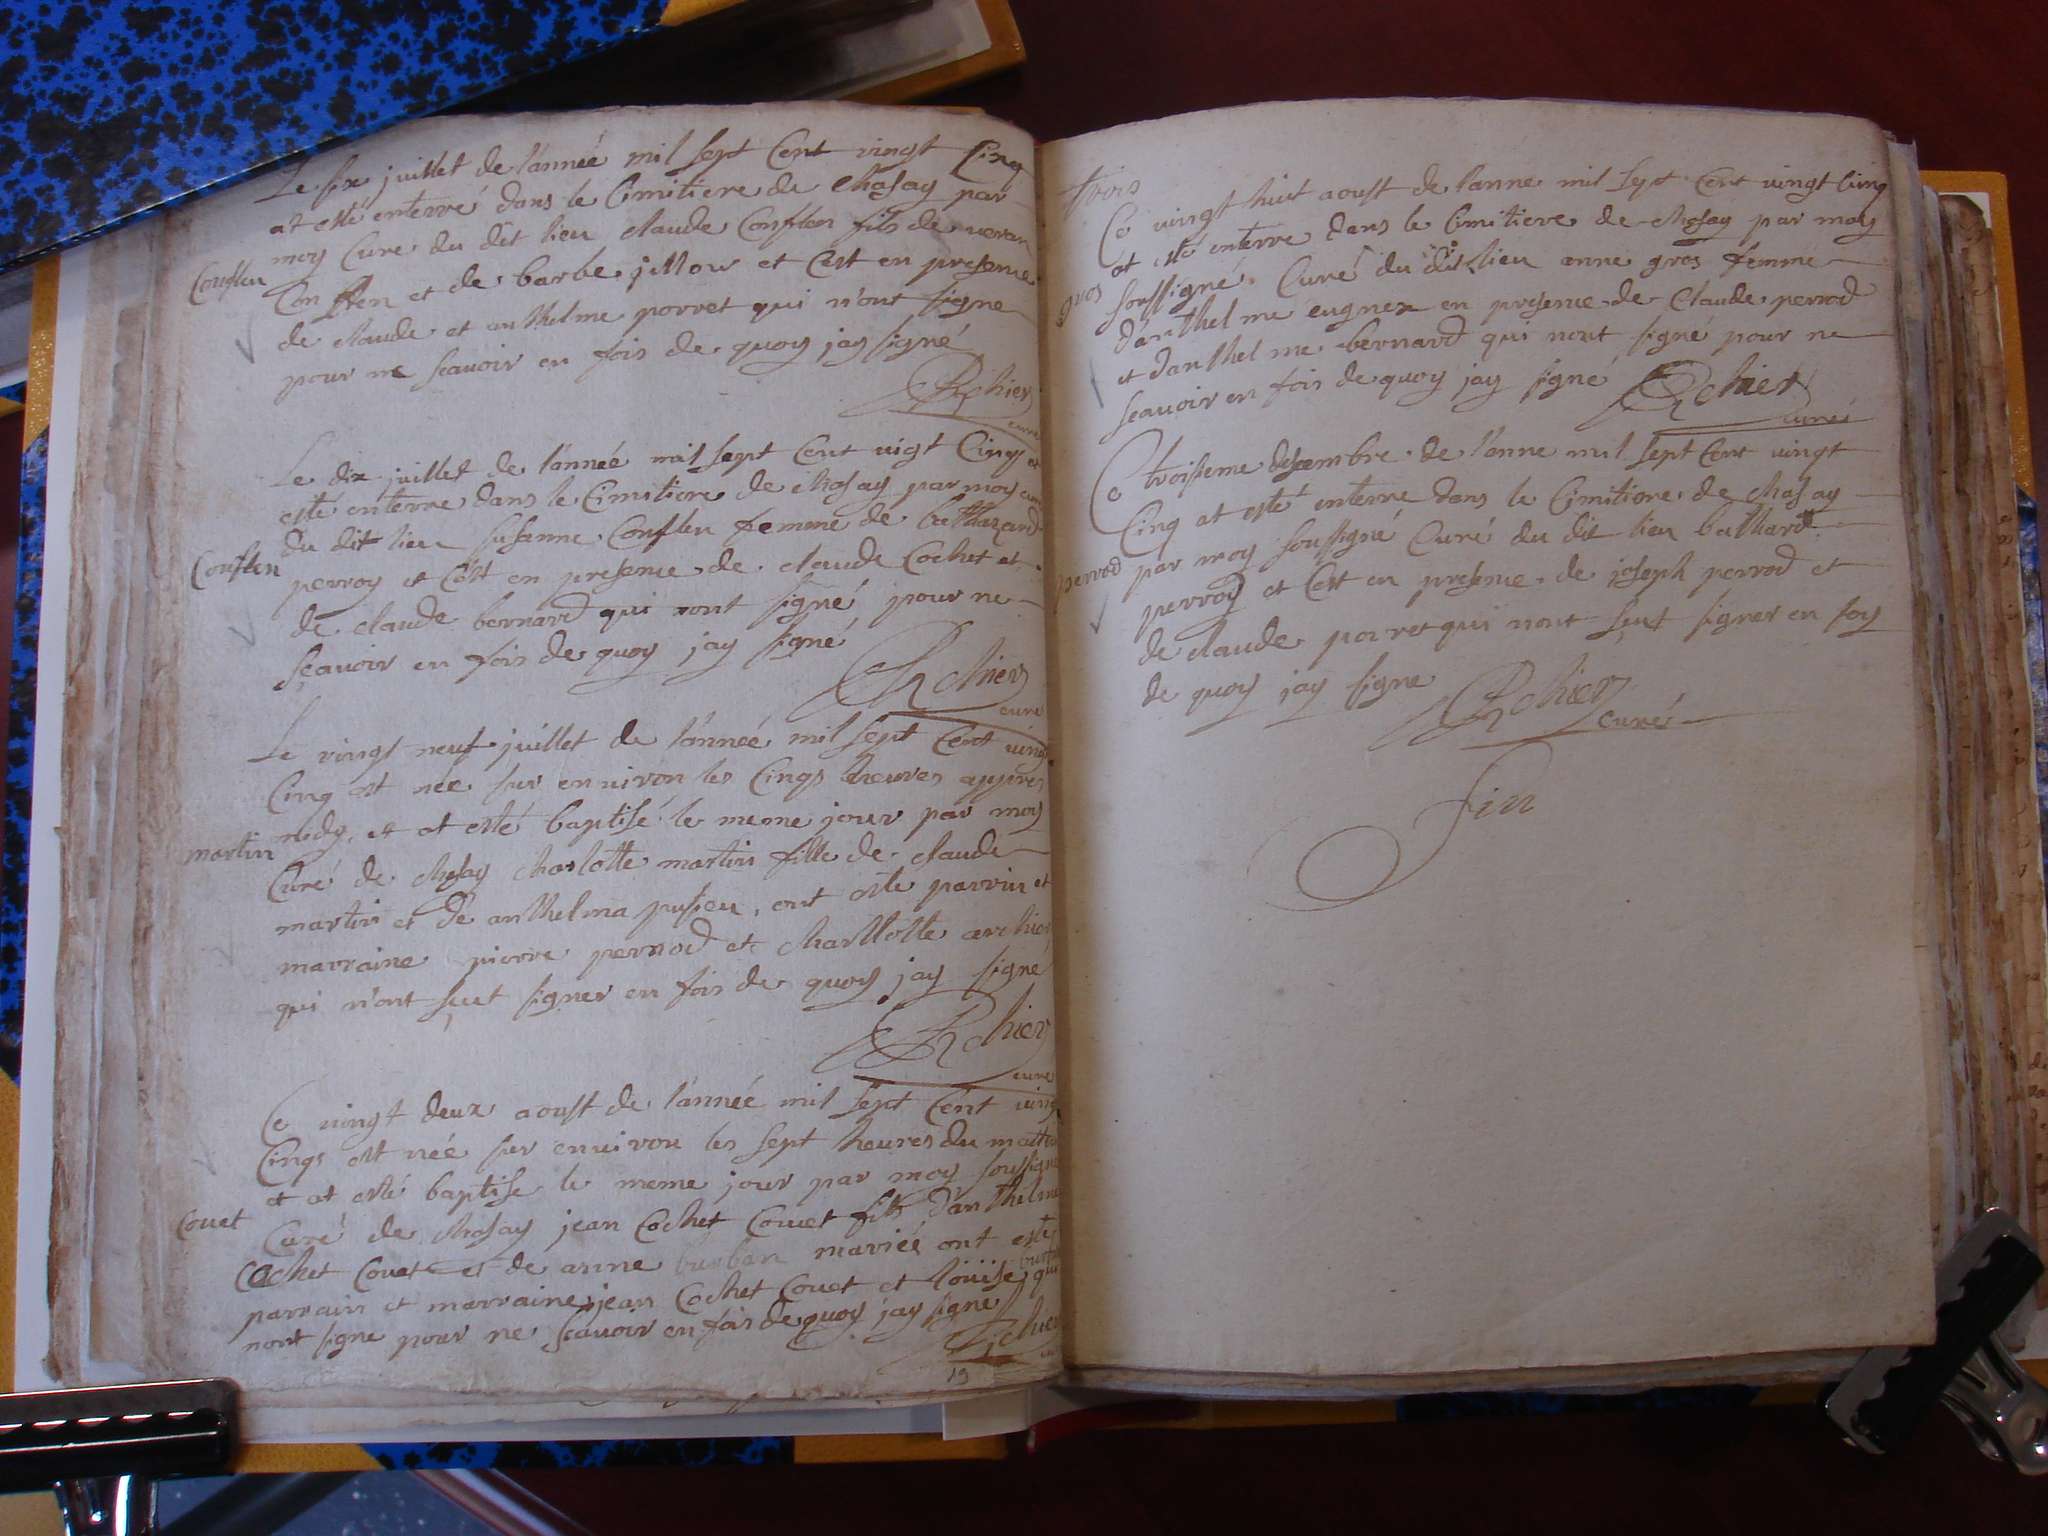 Le six juillet de l'année mil sept Cent vingt Cinq
at esté enterré dans le Cimitiere de Chasay par
moy Cure du dit lieu claude Conflen fils de veran
Conflen
Conflen et de barbe jillour et Cest en presence
de claude et anthelme porret qui n'ont signe
pour ne scauoir en fois de quoy jay signé
Richier
cure
Le dix juillet de l'année mil sept Cent vigt Cinq et
esté enterre dans le Cimitiere de Chasay par moy cure
du dit lieu susanne Conflen femme de balthazard
Conflen
perroy et Cest en presence de claude Cochet et
de claude bernard qui nont signé pour ne
sçauoir en fois de quoy jay signé
Richier
cure
Le vingt neuf juillet de l'année mil sept Cent vingt
Cinq est née sur enuiron les Cinqs heures appres
midy et at esté baptisé le meme jour par moy
martin
Curé de chasay charlotte martin fille de claude
martin et de anthelma pusieu, ont esté parrin et
marraine pierre perrod et charllotte archier
qui n'ont sçut signer en fois de quoy jay signé
Richier
cure
Ce vingt deux aoust de l'année mil sept Cent vingt
Cinqs est née sur enuiron les sept heures du mattin
et at esté baptise le meme jour par moy soussigne
Couet
Curé de chasay jean Cochet Couet fils d'anthelme
Cochet Couet et de anne burban mariéé ont esté
parrain et marraine jean Cochet Couet et loüise qui
nont signe pour ne scauoir en fois de quoy jay signe
Richier
19
trois
Ce vingt huit aoust de l'anne mil sept Cent vingt Cinq
at esté enterre dans le Cimitiere de chasay par moy
gros
soussigné Curé du dit lieu anne gros femme
d'anthelme eugnex en presence de Claude perrod
et d'anthelme bernard qui nont signé pour ne
scauoir en fois de quoy jay signé Richier
curé
Ce troisieme desembre de l'anne mil sept Cent vingt
Cinq at esté enterre dans le Cimitiere de chasay
perrod
par moy soussigné Curé du dit lieu balthard
perrod et Cest en presence de joseph perrod et
de claude porret qui nont sçut signer en foy
de quoy jay signe
Richier
curé
fin